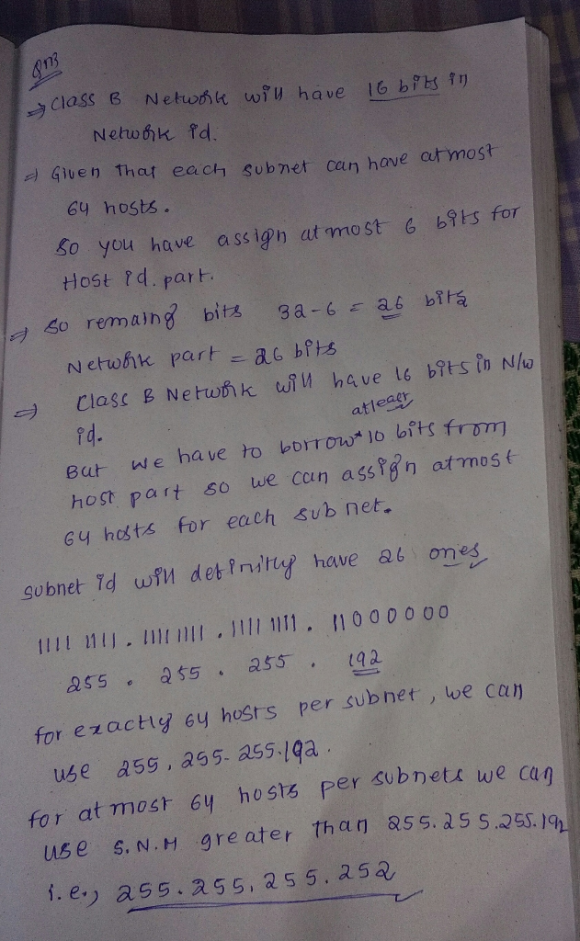 Ans
⇒ Class B Network will have 16 bits in
Network id.
⇒ Given that each subnet can have atmost
64 hosts.
So you have assign at most 6 bits for
Host id. part.
⇒ So remaing bits 32-6 = 26 bits
Network part = 26 bits
⇒ Class B Network will have 16 bits in N/w
id.
atleast
But we have to borrow 10 bits from
host part so we can assign atmost
64 hosts for each sub net.
subnet id will definitly have 26 ones
1111 1111 . 1111 1111 . 1111 1111 . 11000000
255 . 255 . 255 . 192
for exactly 64 hosts per subnet, we can
use 255.255-255.192.
for at most 64 hosts per subnets we can
use S.N.M greater than 255.255.255.192
i.e., 255.255.255.252